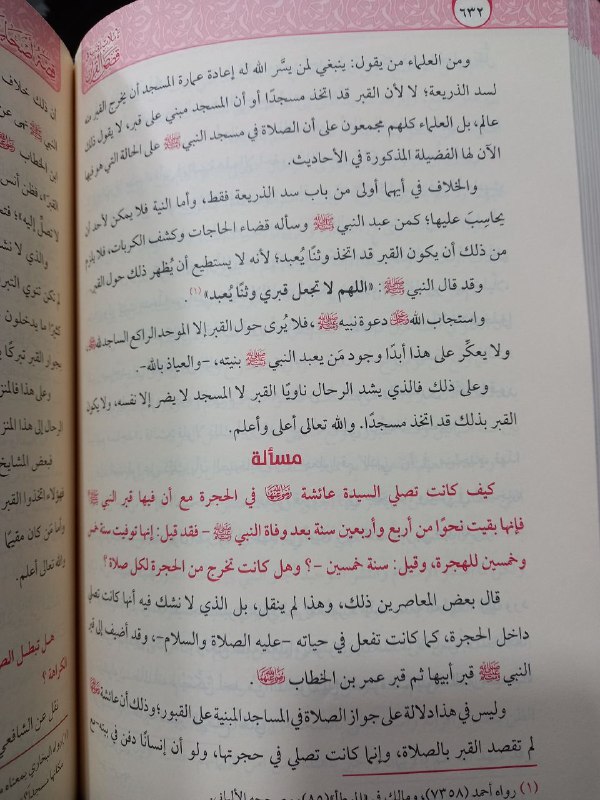 ٦٣٢
ومن العلماء من يقول: ينبغي لمن يسَّر الله له إعادة عمارة المسجد أن يخرج القبر لله
لسد الذريعة؛ لا لأن القبر قد اتخذ مسجدًا أو أن المسجد مبني على قبر، لا يقول ذلك
عالم، بل العلماء كلهم مجمعون على أن الصلاة في مسجد النبي ﷺ على الحالة التي هو فيها
الآن لها الفضيلة المذكورة في الأحاديث.
والخلاف في أيهما أولى من باب سد الذريعة فقط، وأما النية فلا يمكن لأحد أن
يحاسِبَ عليها؛ كمن عبد النبي ﷺ وسأله قضاء الحاجات وكشف الكربات، فلا يلزم
من ذلك أن يكون القبر قد اتخذ وثنًا يُعبد؛ لأنه لا يستطيع أن يُظهر ذلك حول القبر.
وقد قال النبي ﷺ: «اللهم لا تجعل قبري وثنًا يُعبد» (١).
واستجاب الله ﷻ دعوة نبيه ﷺ، فلا يُرى حول القبر إلا الموحد الراكع الساجد لله
ولا يعكِّر على هذا أبدًا وجود مَن يعبد النبي ﷺ بنيته، -والعياذ بالله-.
وعلى ذلك فالذي يشد الرحال ناويًا القبر لا المسجد لا يضر إلا نفسه، ولا يكون
القبر بذلك قد اتخذ مسجدًا. والله تعالى أعلى وأعلم.
مسألة
كيف كانت تصلي السيدة عائشة رضي الله عنها في الحجرة مع أن فيها قبر النبي ﷺ
فإنها بقيت نحوًا من أربع وأربعين سنة بعد وفاة النبي ﷺ - فقد قيل: إنها توفيت سنة خمس
وخمسين للهجرة، وقيل: سنة خمسين -؟ وهل كانت تخرج من الحجرة لكل صلاة؟
قال بعض المعاصرين ذلك، وهذا لم ينقل، بل الذي لا نشك فيه أنها كانت تصلي
داخل الحجرة، كما كانت تفعل في حياته -عليه الصلاة والسلام-، وقد أضيف إلى قبر
النبي ﷺ قبر أبيها ثم قبر عمر بن الخطاب رضي الله عنهما.
وليس في هذا دلالة على جواز الصلاة في المساجد المبنية على القبور؛ وذلك أن عائشة رضي الله عنها
لم تقصد القبر بالصلاة، وإنما كانت تصلي في حجرتها، ولو أن إنسانًا دفن في بيته-مع
(١) رواه أحمد (٧٣٥٨)، ومالك في الموطأ